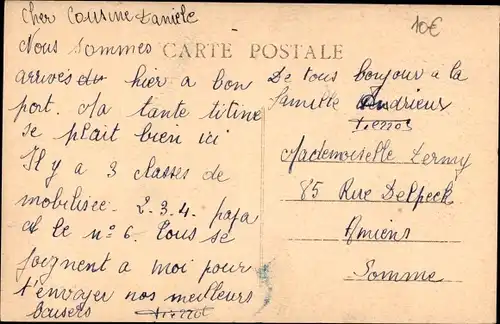 cher Cousine Danièle
10€
Nous sommes
CARTE POSTALE
arrivés hier a bon
port. Ma tante titine
se plait bien ici
Il y a 3 classes de
mobilisée. 2.3.4. papa
et le nº 6. Tous se
joignent a moi pour
t'envoyer nos meilleurs
baisers Pierrot
De tous bonjour a la
famille Andrieux
Pierrot
Mademoiselle Lermy
85 Rue Delpech
Amiens
Somme